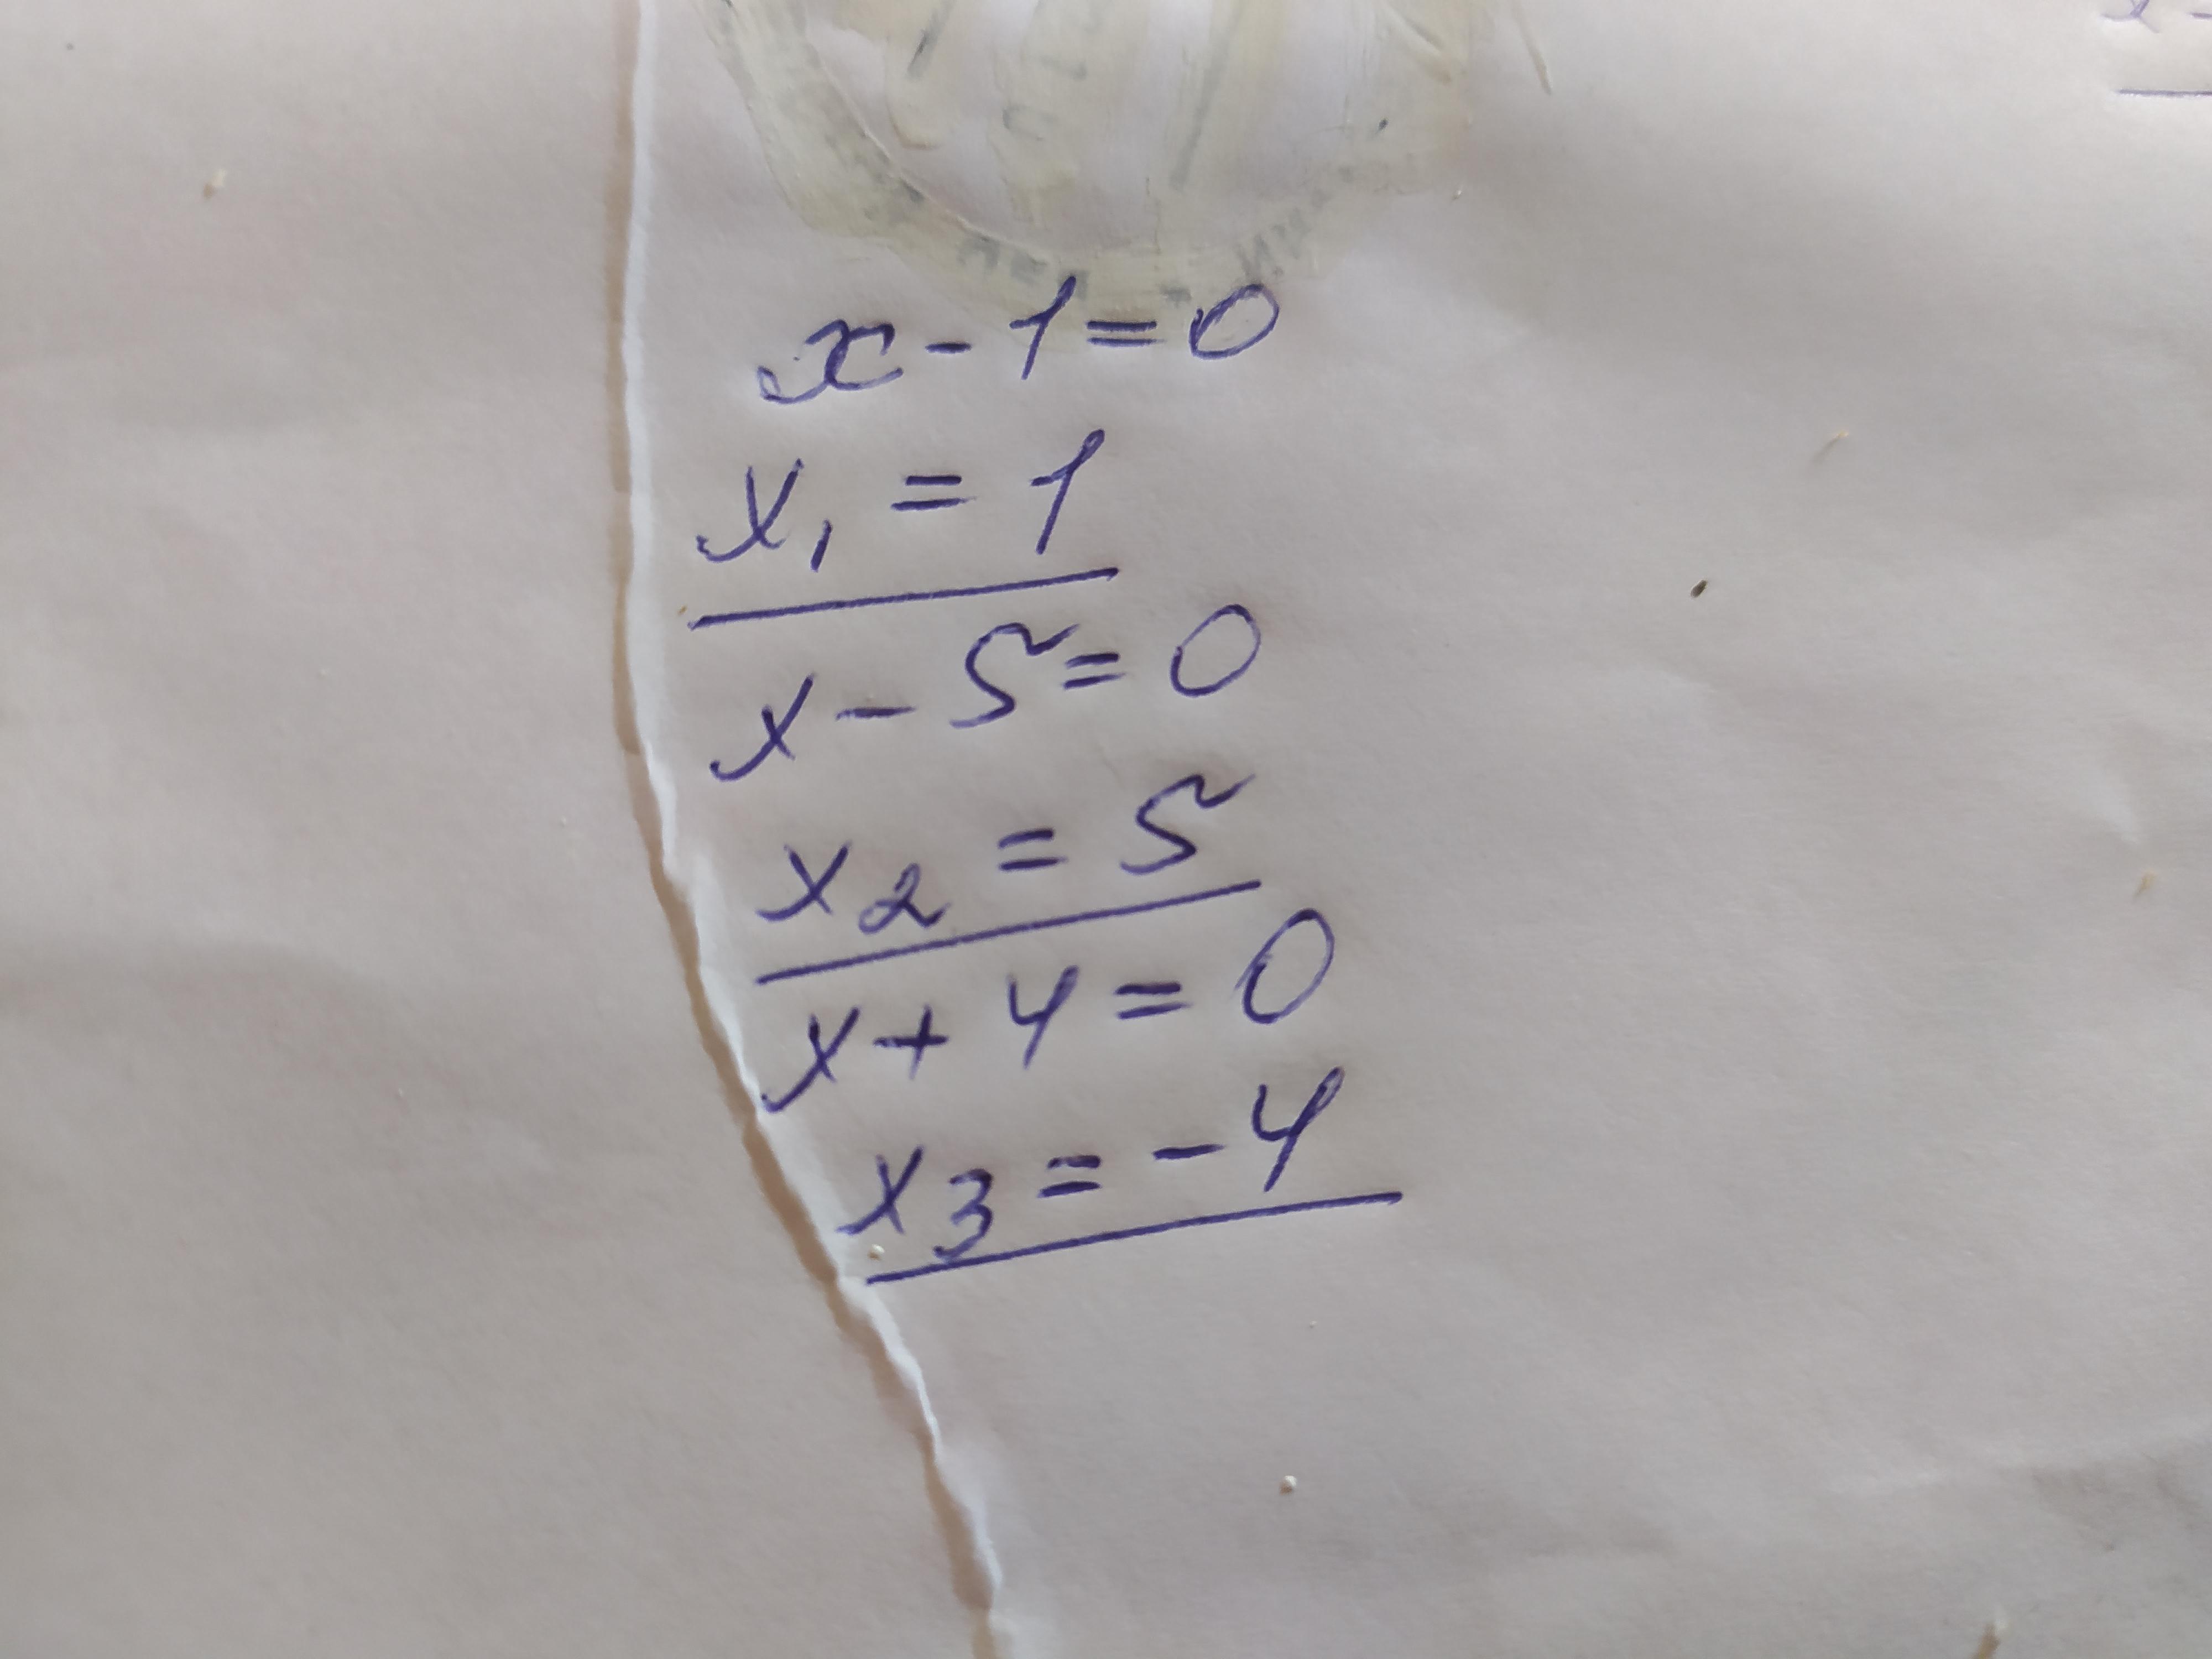 x - 1 = 0
x₁ = 1
x - 5 = 0
x₂ = 5
x + 4 = 0
x₃ = -4